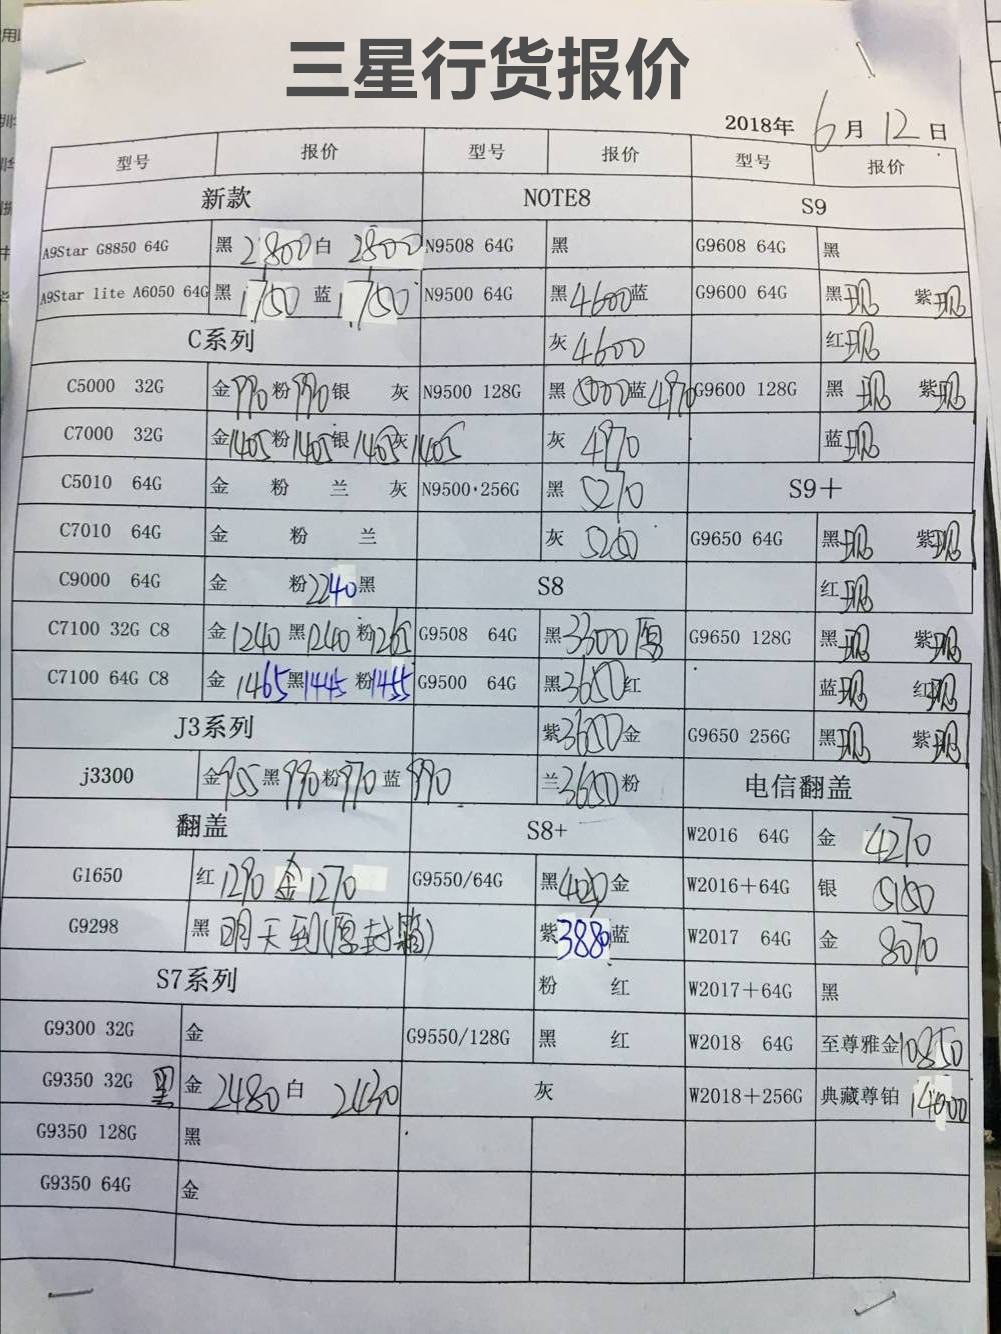 三星行货报价
2018年 6月 12日
型号 报价 型号 报价 型号 报价
新款 NOTE8 S9
A9Star G8850 64G 黑 2800 白 2800 N9508 64G 黑 G9608 64G 黑
A9Star lite A6050 64G 黑 1750 蓝 1750 N9500 64G 黑 4600 蓝 G9600 64G 黑 现 紫 现
C系列 灰 4600 红 现
C5000 32G 金 990 粉 990 银 灰 N9500 128G 黑 5000 蓝 4970 G9600 128G 黑 现 紫 现
C7000 32G 金 1405 粉 1405 银 1465 灰 1405 灰 4970 蓝 现
C5010 64G 金 粉 兰 灰 N9500·256G 黑 5270 S9+
C7010 64G 金 粉 兰 灰 5260 G9650 64G 黑 现 紫 现
C9000 64G 金 粉 2240 黑 S8 红 现
C7100 32G C8 金 1240 黑 1240 粉 1265 G9508 64G 黑 3300 原 G9650 128G 黑 现 紫 现
C7100 64G C8 金 1465 黑 1445 粉 1455 G9500 64G 黑 3650 红 蓝 现 红 现
J3系列 紫 3650 金 G9650 256G 黑 现 紫 现
j3300 金 955 黑 990 粉 970 蓝 990 兰 3650 粉 电信翻盖
翻盖 S8+ W2016 64G 金 4270
G1650 红 1290 金 1270 G9550/64G 黑 4020 金 W2016+64G 银 5150
G9298 黑 明天到(原封箱) 紫 3880 蓝 W2017 64G 金 8070
S7系列 粉 红 W2017+64G 黑
G9300 32G 金 G9550/128G 黑 红 W2018 64G 至尊雅金 10850
G9350 32G 黑 金 2480 白 2430 灰 W2018+256G 典藏尊铂 14600
G9350 128G 黑
G9350 64G 金